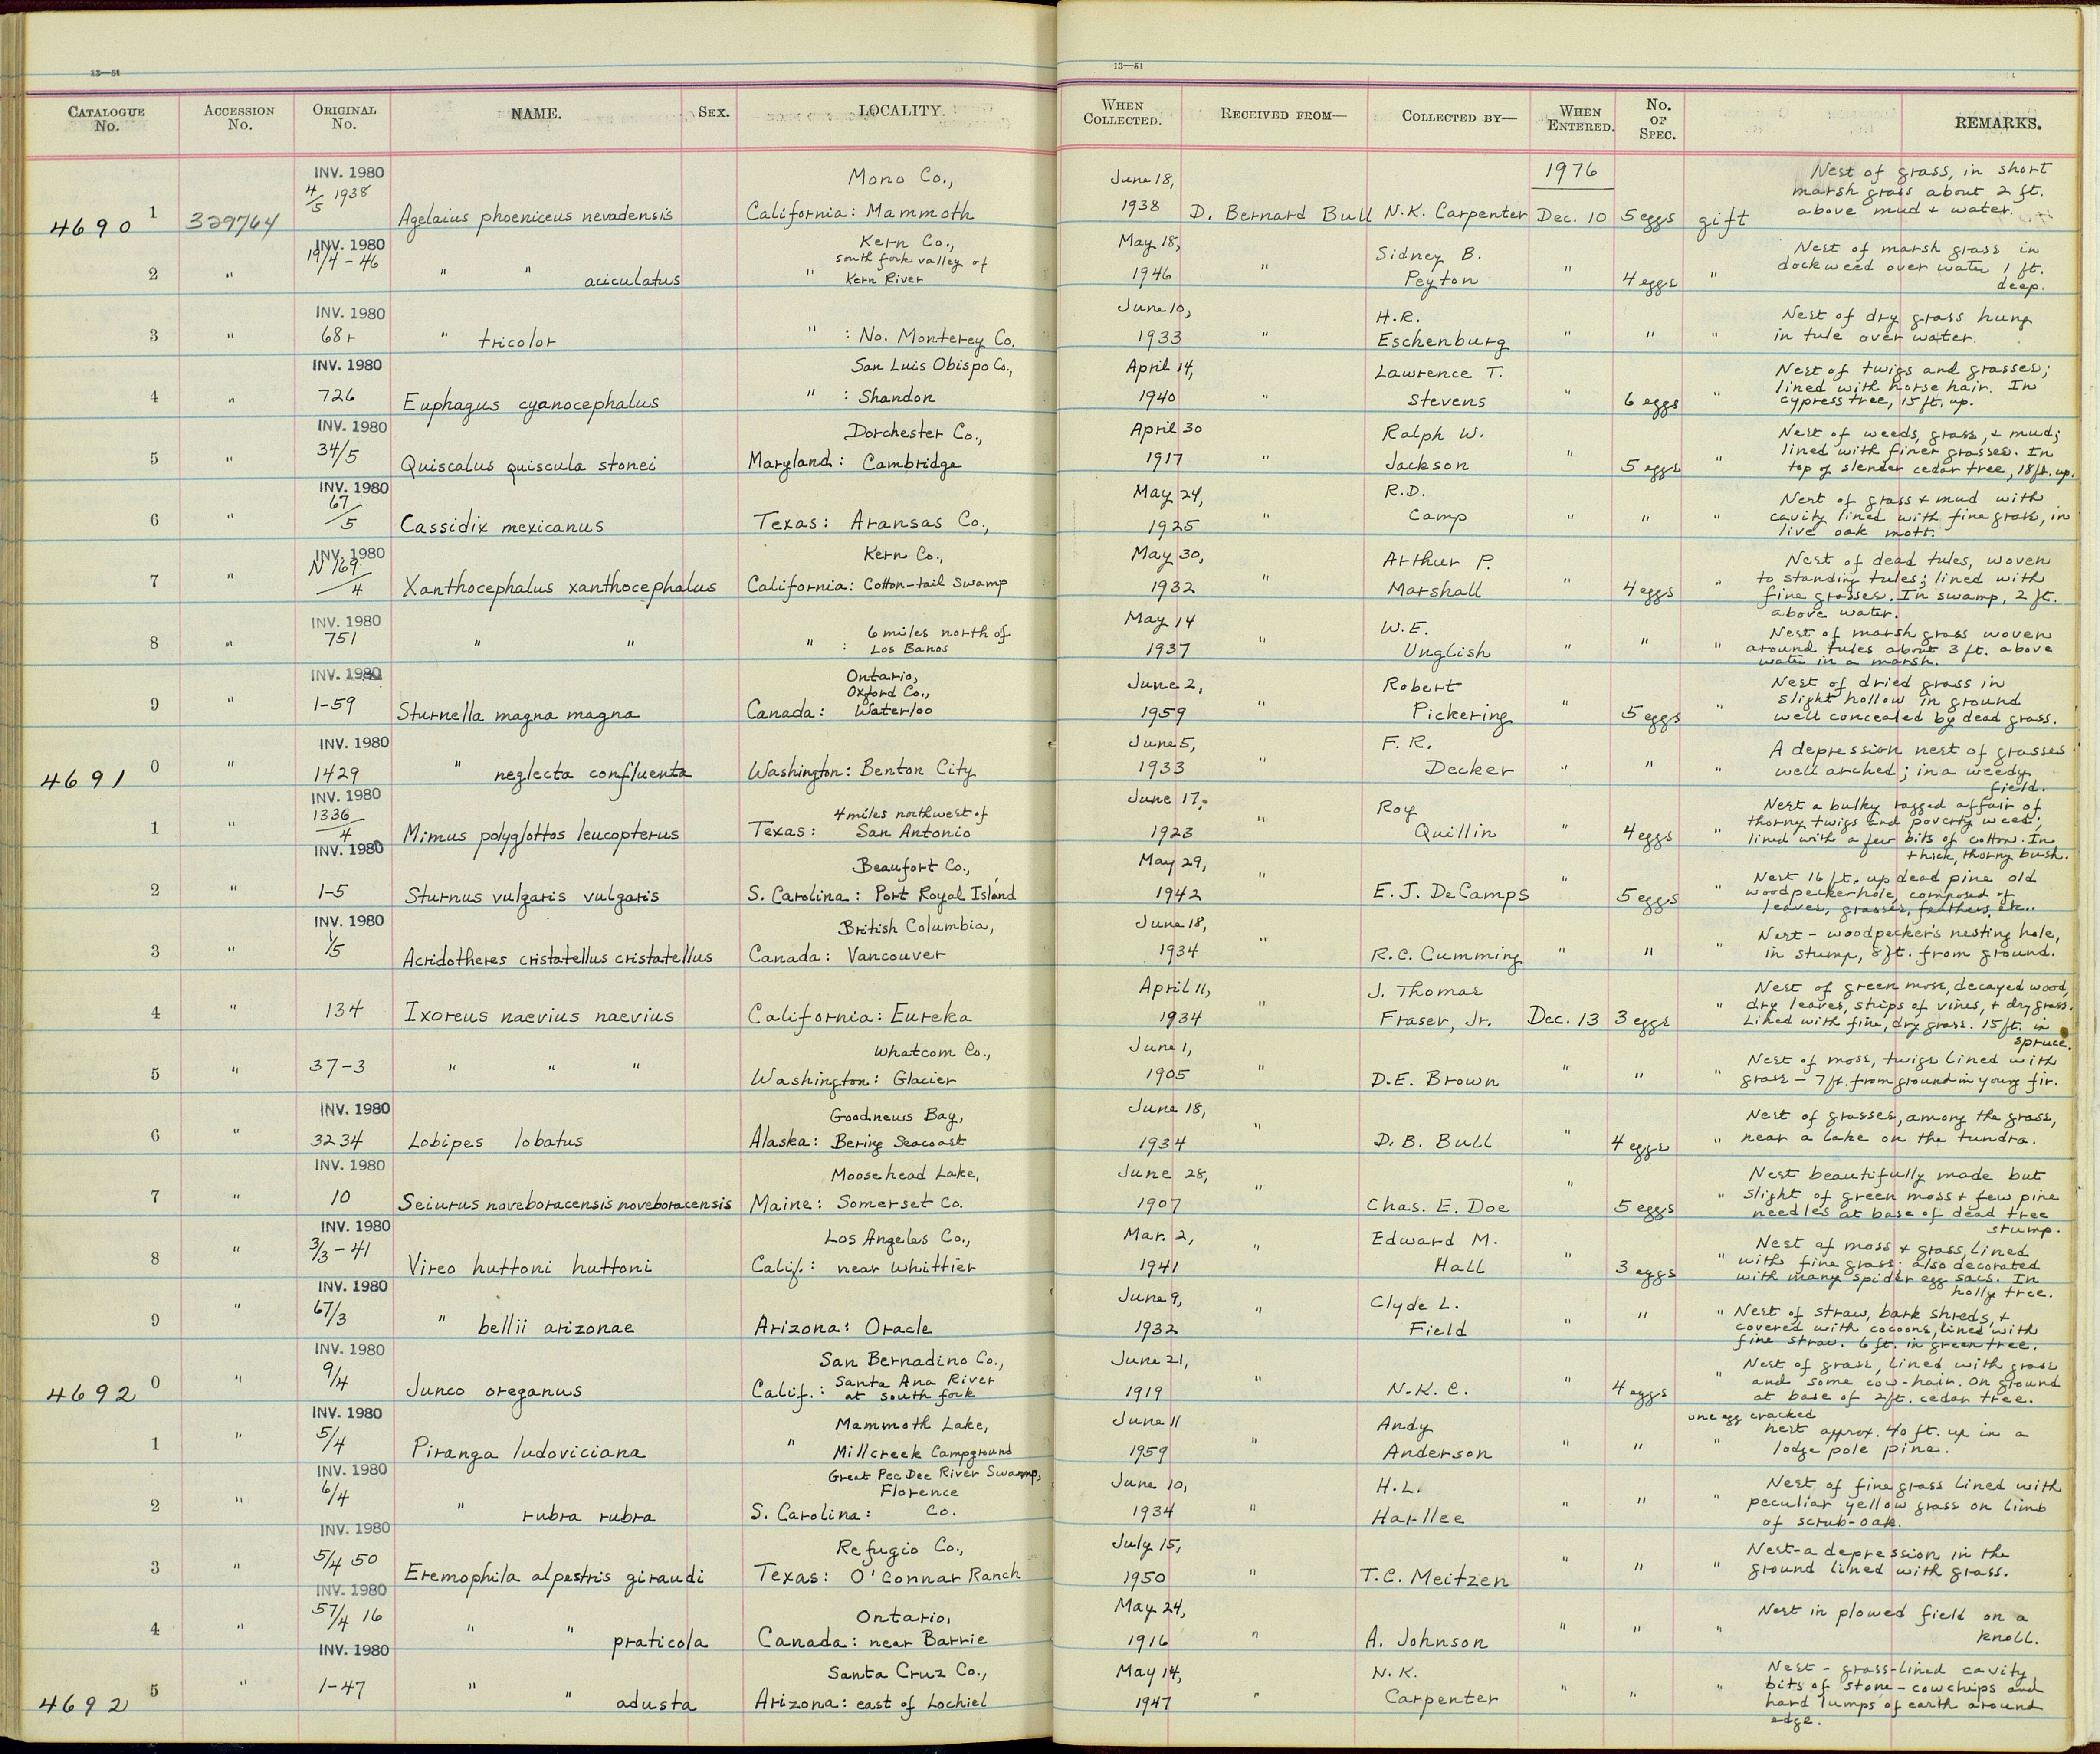 13—51
13—51
CATALOGUE No. ACCESSION No. ORIGINAL No. NAME. SEX. LOCALITY. WHEN COLLECTED. RECEIVED FROM— COLLECTED BY— WHEN ENTERED. No. OF SPEC. REMARKS.
INV. 1980 Mono Co., June 18, 1976 Nest of grass, in short
4/5 1938 marsh grass about 2 ft.
46901 329764 Agelaius phoeniceus nevadensis California: Mammoth 1938 D. Bernard Bull N.K. Carpenter Dec. 10 5 eggs gift above mud & water.
INV. 1980 Kern Co., May 18, Sidney B. Nest of marsh grass in
19/4-46 south fork valley of dockweed over water 1 ft.
2 " " " aciculatus " Kern River 1946 " Peyton " 4 eggs " deep.
INV. 1980 June 10, H.R. Nest of dry grass hung
3 " 68r " tricolor " : No. Monterey Co. 1933 " Eschenburg " " " in tule over water.
INV. 1980 San Luis Obispo Co., April 14, Lawrence T. Nest of twigs and grasses;
lined with horse hair. In
4 " 726 Euphagus cyanocephalus " : Shandon 1940 " Stevens " 6 eggs " cypress tree, 15 ft. up.
INV. 1980 Dorchester Co., April 30 Ralph W. Nest of weeds, grass, & mud;
lined with finer grasses. In
5 " 34/5 Quiscalus quiscula stonei Maryland: Cambridge 1917 Jackson " 5 eggs " top of slender cedar tree, 18 ft. up.
INV. 1980 May 24, R.D. Nest of grass & mud with
cavity lined with fine grass, in
6 " 67/5 Cassidix mexicanus Texas: Aransas Co., 1925 " Camp " " " live oak mott.
INV. 1980 Kern Co., May 30, Arthur P. Nest of dead tules, woven
to standing tules; lined with
7 " N 169/4 Xanthocephalus xanthocephalus California: Cotton-tail Swamp 1932 " Marshall " 4 eggs " fine grasses. In swamp, 2 ft.
above water.
INV. 1980 6 miles north of May 14 W.E. Nest of marsh grass woven
around tules about 3 ft. above
8 " 751 " " " : Los Banos 1937 " Unglish " " " water in a marsh.
INV. 1980 Ontario, Oxford Co., June 2, Robert Nest of dried grass in
slight hollow in ground
9 " 1-59 Sturnella magna magna Canada: Waterloo 1959 " Pickering " 5 eggs " well concealed by dead grass.
INV. 1980 June 5, F.R. A depression nest of grasses
well arched; in a weedy
46910 " 1429 " neglecta confluenta Washington: Benton City 1933 " Decker " " " field.
INV. 1980 4 miles northwest of June 17, Roy Nest a bulky ragged affair of
thorny twigs and poverty weed;
1 " 1336/4 Mimus polyglottos leucopterus Texas: San Antonio 1923 " Quillin " 4 eggs " lined with a few bits of cotton. In
thick, thorny bush.
INV. 1980 Beaufort Co., May 29, Nest 16 ft. up dead pine old
woodpecker hole, composed of
2 " 1-5 Sturnus vulgaris vulgaris S. Carolina: Port Royal Island 1942 " E.J. DeCamps " 5 eggs " leaves, grasses, feathers, etc..
INV. 1980 British Columbia, June 18, Nest - woodpecker's nesting hole,
3 " 1/5 Acridotheres cristatellus cristatellus Canada: Vancouver 1934 " R.C. Cumming " " " in stump, 8 ft. from ground.
April 11, J. Thomas Nest of green moss, decayed wood,
dry leaves, strips of vines, & dry grass.
4 " 134 Ixoreus naevius naevius California: Eureka 1934 " Fraser, Jr. Dec. 13 3 eggs " Lined with fine, dry grass. 15 ft. in
spruce.
Whatcom Co., June 1, Nest of moss, twigs lined with
5 " 37-3 " " " Washington: Glacier 1905 " D.E. Brown " " " grass - 7 ft. from ground in young fir.
INV. 1980 Goodnews Bay, June 18, Nest of grasses, among the grass,
6 " 3234 Lobipes lobatus Alaska: Bering Seacoast 1934 " D.B. Bull " 4 eggs " near a lake on the tundra.
INV. 1980 Moosehead Lake, June 28, Nest beautifully made but
slight of green moss & few pine
7 " 10 Seiurus noveboracensis noveboracensis Maine: Somerset Co. 1907 " Chas. E. Doe " 5 eggs " needles at base of dead tree
stump.
INV. 1980 Los Angeles Co., Mar. 2, Edward M. Nest of moss & grass, lined
with fine grass; also decorated
8 " 3/3-41 Vireo huttoni huttoni Calif.: near Whittier 1941 " Hall " 3 eggs " with many spider egg sacs. In
holly tree.
INV. 1980 June 9, Clyde L. Nest of straw, bark shreds, &
covered with cocoons, lined with
9 " 67/3 " bellii arizonae Arizona: Oracle 1932 " Field " " " fine straw. 6 ft. in green tree.
INV. 1980 San Bernadino Co., June 21, Nest of grass, lined with grass
Santa Ana River and some cow-hair. On ground
46920 " 9/4 Junco oreganus Calif.: at south fork 1919 " N.K.C. " 4 eggs " at base of 2 ft. cedar tree.
one egg cracked
INV. 1980 Mammoth Lake, June 11 Andy nest approx. 40 ft. up in a
1 " 5/4 Piranga ludoviciana " Millcreek Campground 1959 " Anderson " " " lodge pole pine.
INV. 1980 Great Pee Dee River Swamp, June 10, H.L. Nest of fine grass lined with
Florence peculiar yellow grass on limb
2 " 6/4 " rubra rubra S. Carolina: Co. 1934 " Harllee " " " of scrub-oak.
INV. 1980 Refugio Co., July 15, Nest-a depression in the
3 " 5/4 50 Eremophila alpestris giraudi Texas: O'Connar Ranch 1950 " T.C. Meitzen " " " ground lined with grass.
INV. 1980 Ontario, May 24, Nest in plowed field on a
4 " 57/4 16 " " praticola Canada: near Barrie 1916 " A. Johnson " " " knoll.
INV. 1980 Santa Cruz Co., May 14, N.K. Nest - grass-lined cavity
bits of stone - cowchips and
46925 " 1-47 " " adusta Arizona: east of Lochiel 1947 " Carpenter " " " hard lumps of earth around
edge.